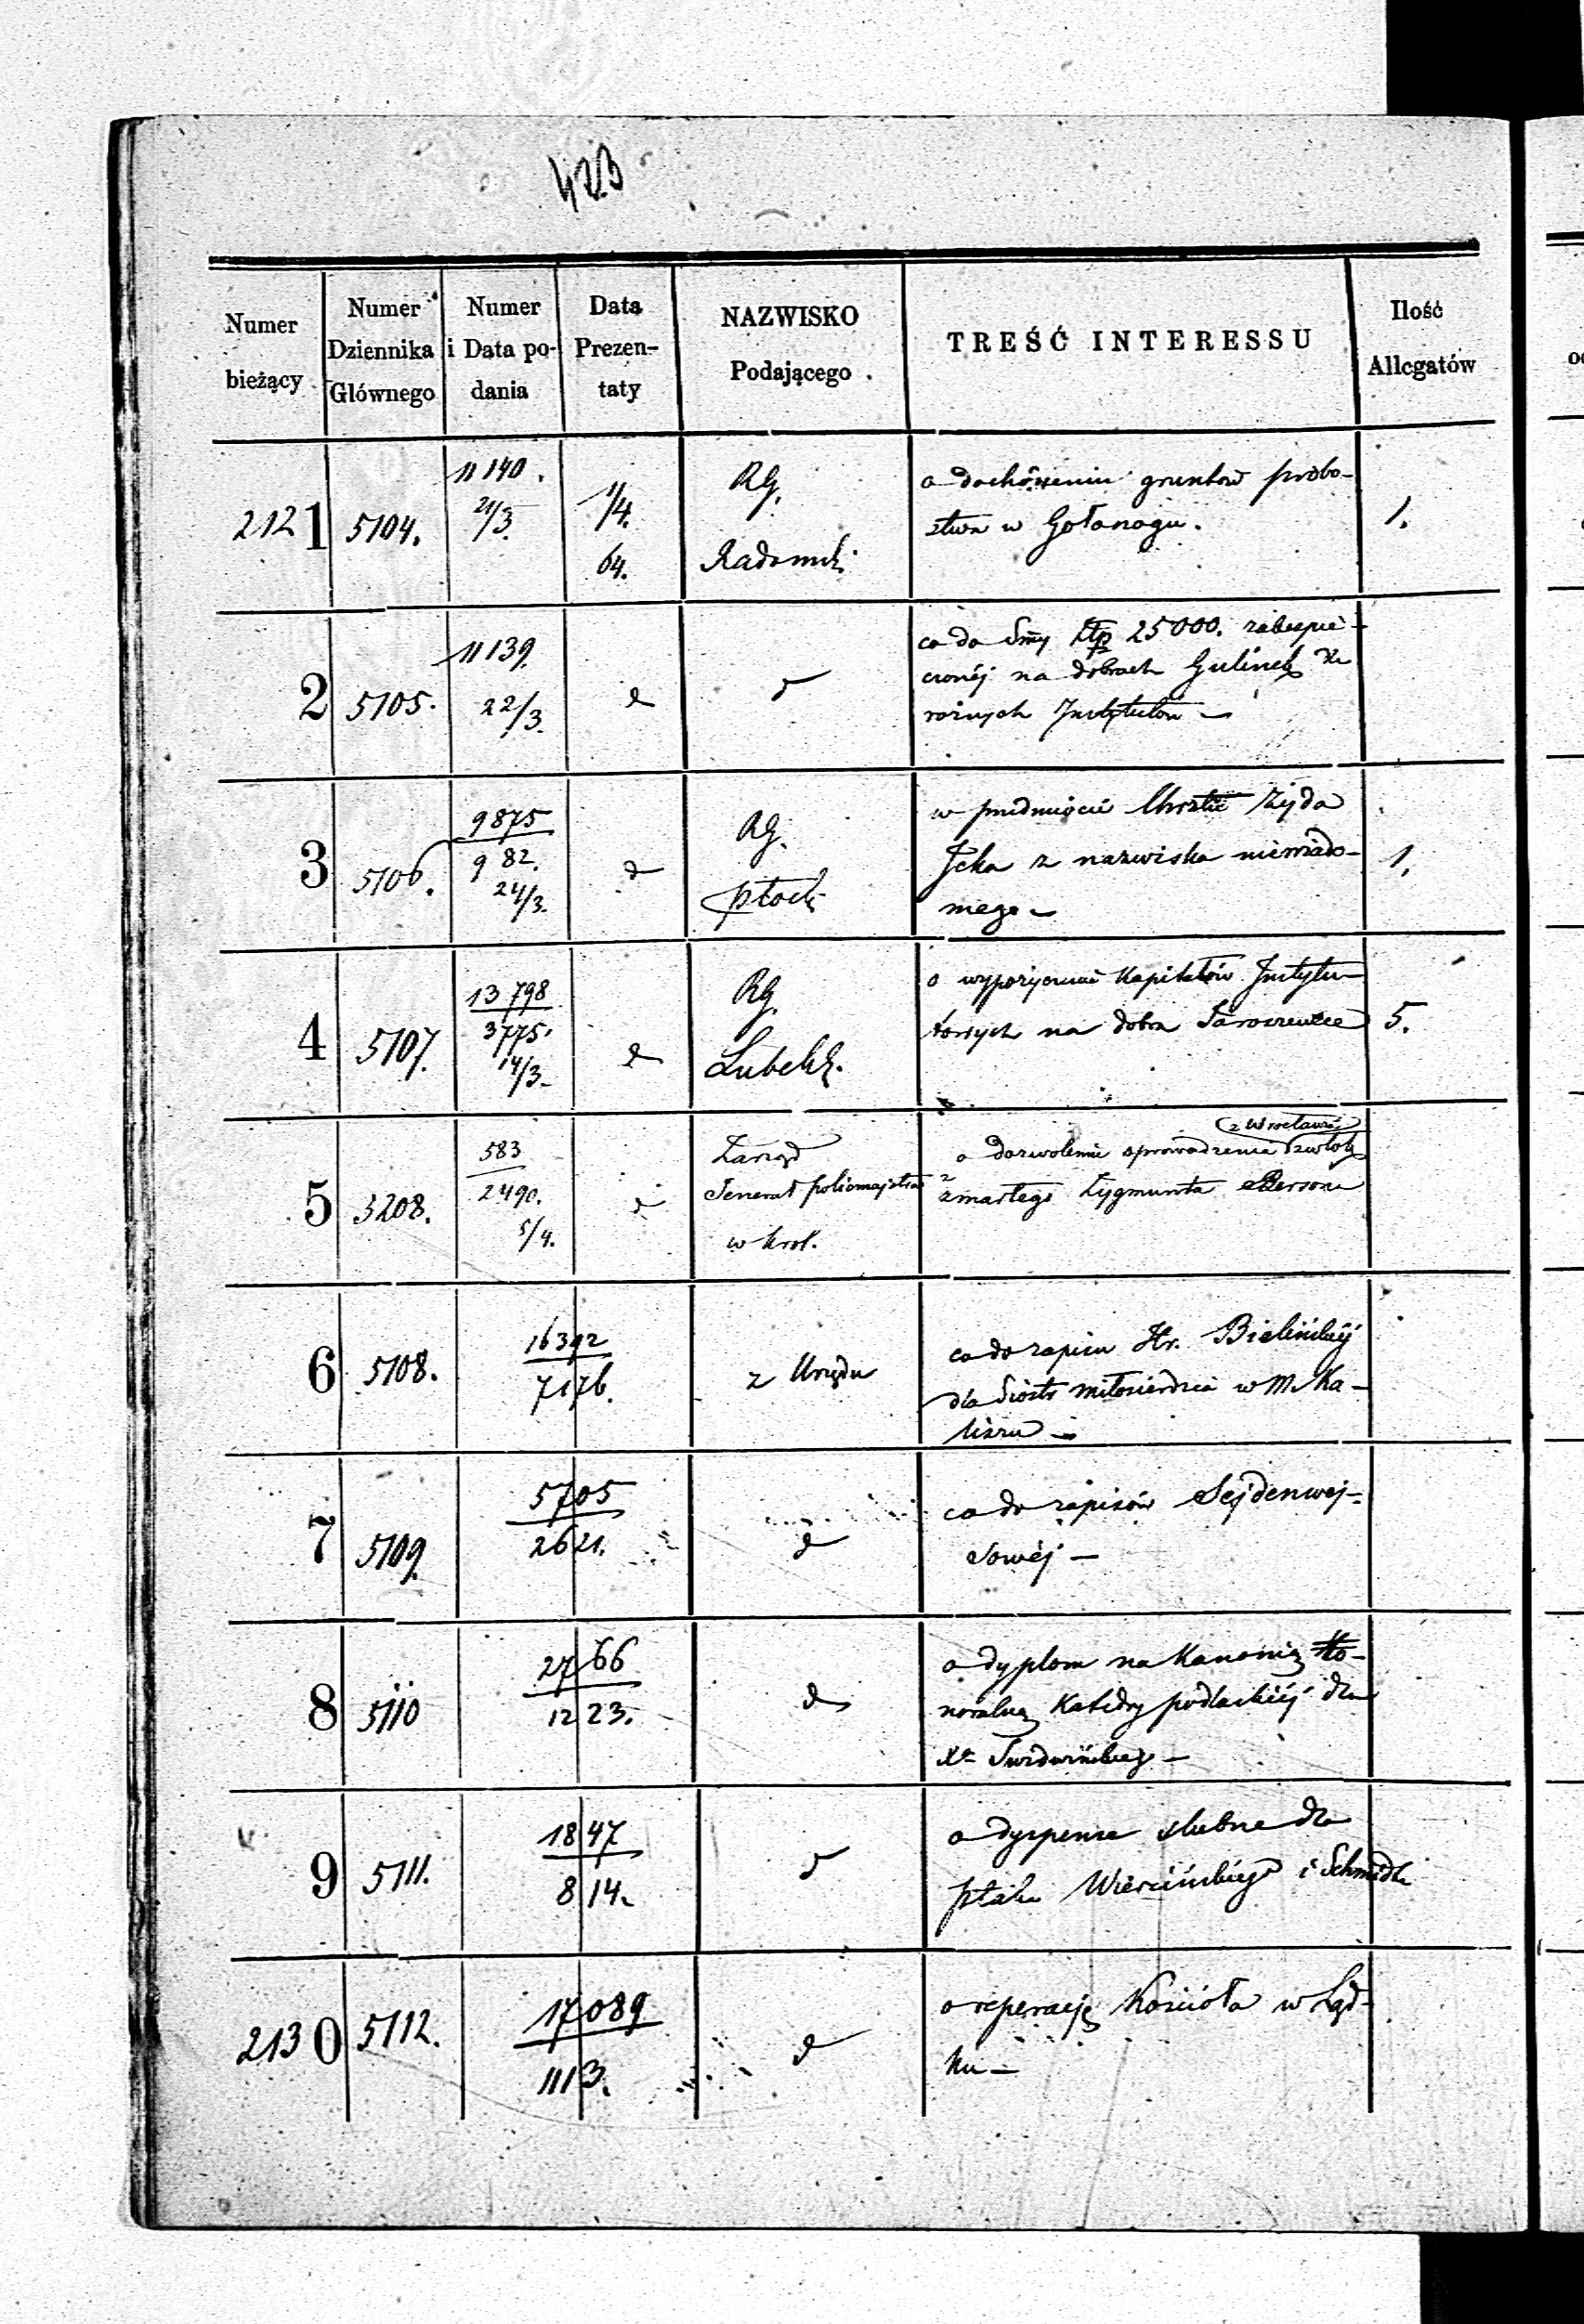 423
Numer bieżący
Numer Dziennika Głównego
Numer i Data podania
Data Prezentaty
NAZWISKO Podającego.
TREŚĆ INTERESSU
Ilość Allegatów
2121 5104. 11140. 21/3. 1/4. 64. RG. Radomsk. 1.
gruntow probo-
stwa w Gołonogu.
2 5105. 11139. 22/3. d d
co do Smy Złp 25000. zabezpie-
czonéj na dobrach
rożnych Instytutów —
3 5106. 9875 982. 24/3. d RG. Płock. 1.
w przedmiocie Chrztu żyda
Icka z nazwiska niewiado-
mego —
4 5107. 13798 3775. 14/3. d RG. Lubelsk. 5.
o wypożyczenie Kapitałów Instytu-
towych na dobra
5 3208. 583 2490. 5/4. d Zarząd Jenerał policmajstra w Krol.
z Wrocławia
o dozwolenie sprowadzenia zwłok
zmarłego Zygmunta Bersona
6 5108. 7176. z Urzędu
co do zapisu Hr. Bielińskiéj
dla Siostr miłosierdzia w M. Ka-
liszu —
7 5109. 5705 2621. d
co do zapisów Sejdenwej-
sowéj —
8 5110 2766 1223. d
o dyplom na Kanonią Ho-
noralną Katedry podlaskiéj dla
Xa
9 5111. 1847 814. d
o dyspense slubne dla
Wiercińskiego i Schmidt
2130 5112. 17089 1113. d
o reperacją Kościoła w Ląd-
ku —